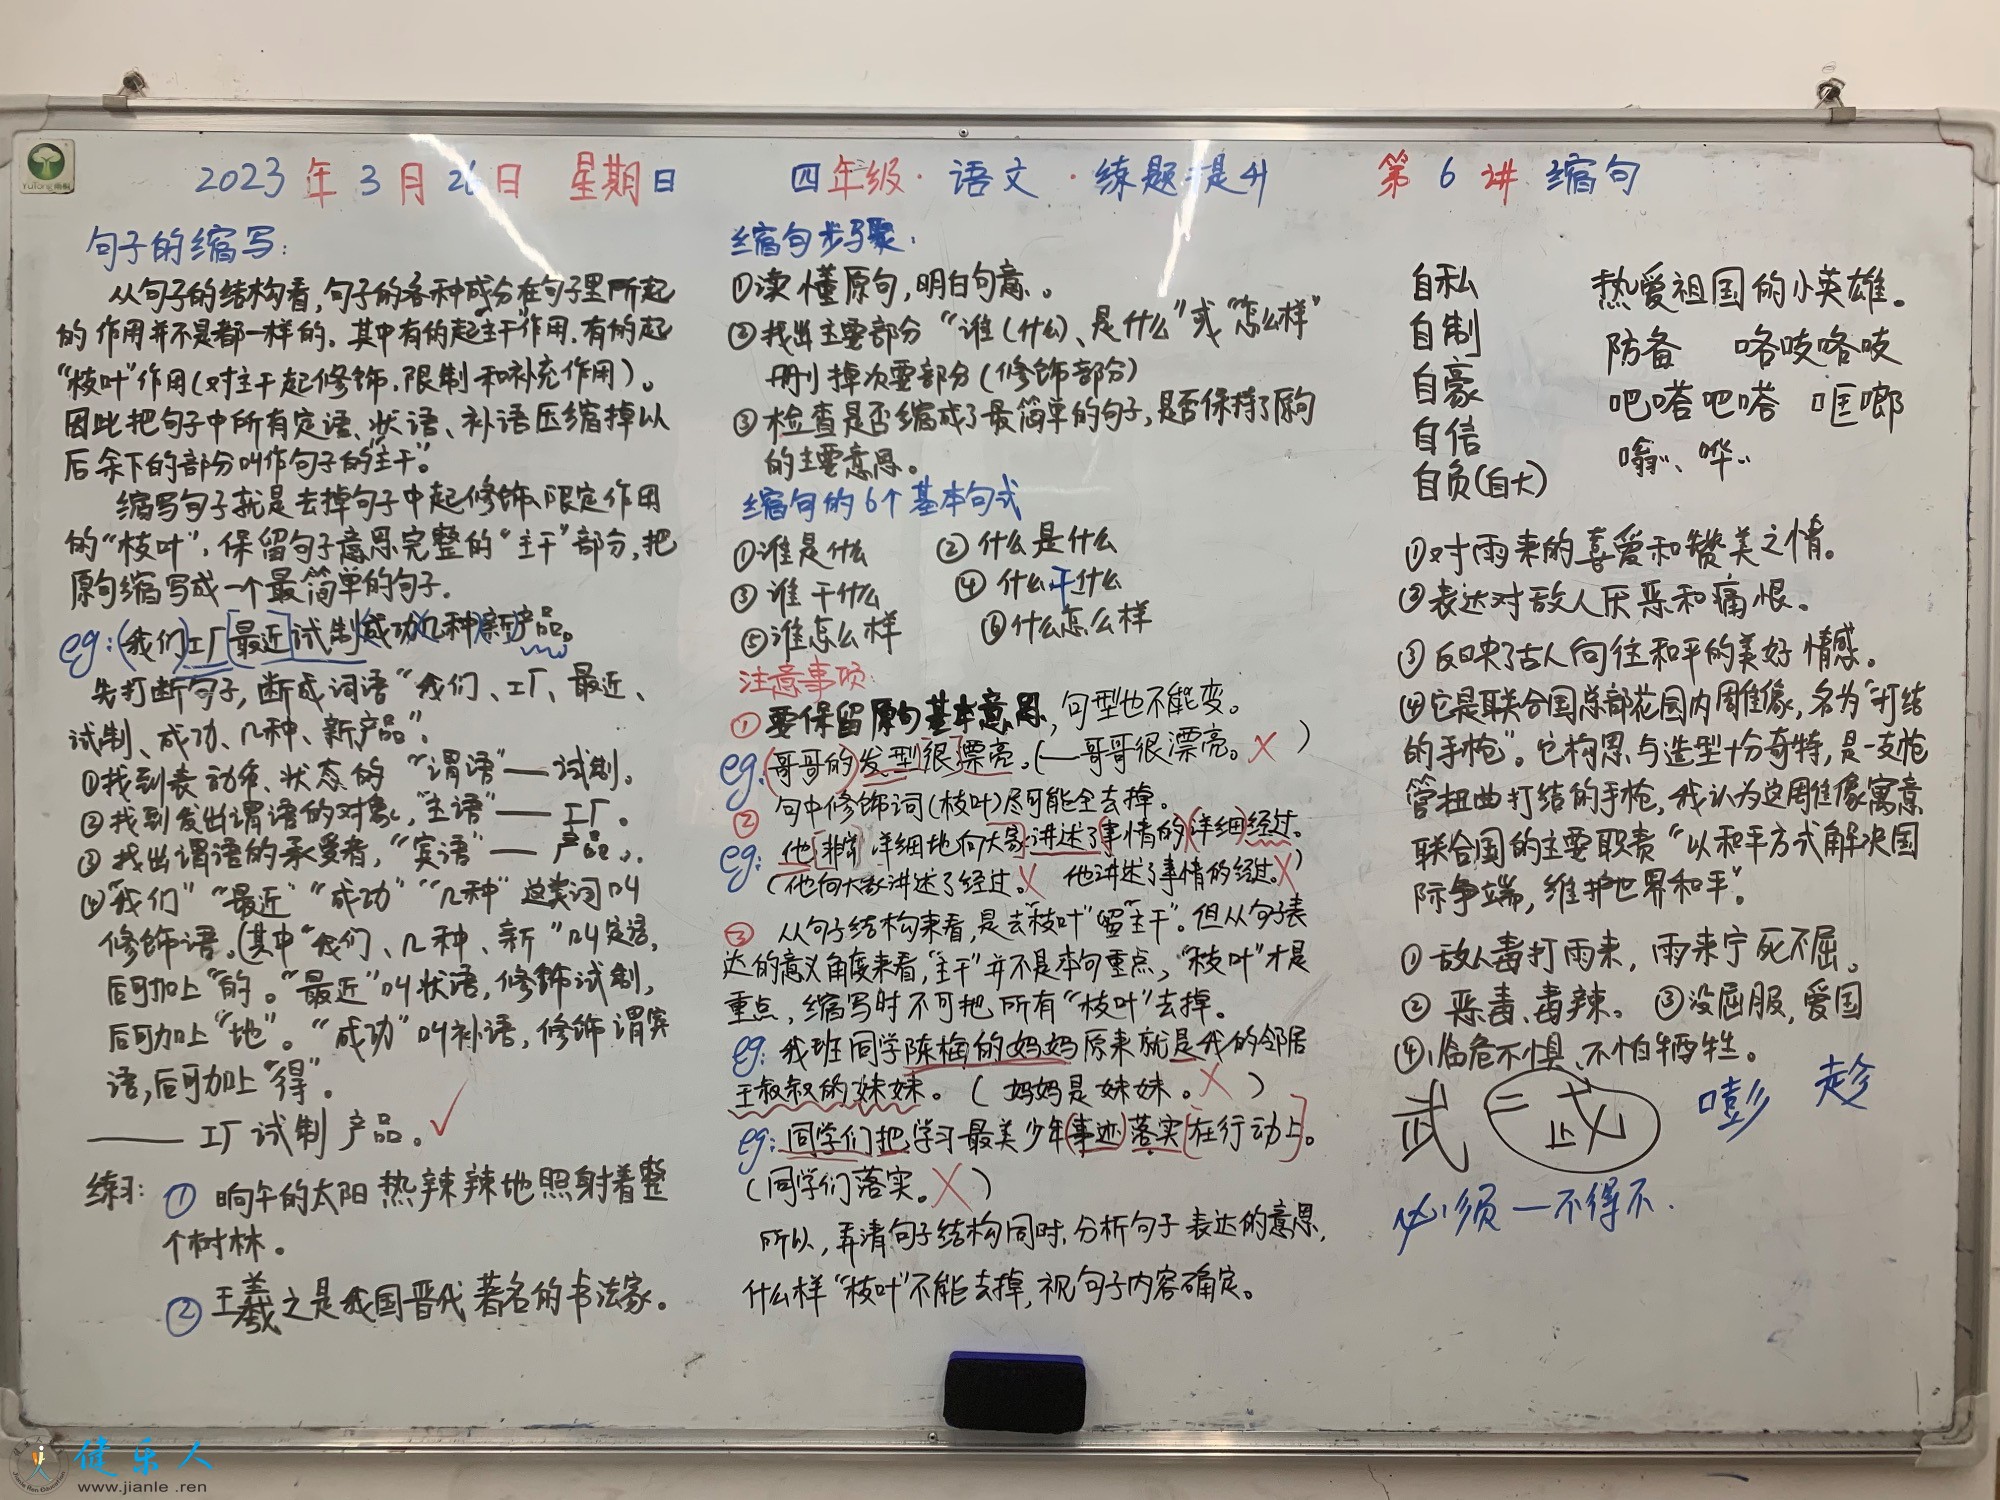 2023年3月26日 星期日 四年级·语文·练题提升 第6讲 缩句
句子的缩写:
从句子的结构看,句子的各种成分在句子里所起
的作用并不是都一样的。其中有的起"主干"作用,有的起
"枝叶"作用(对主干起修饰、限制和补充作用)。
因此把句子中所有定语、状语、补语压缩掉以
后余下的部分叫作句子的"主干"。
缩写句子就是去掉句子中起修饰、限定作用
的"枝叶",保留句子意思完整的"主干"部分,把
原句缩写成一个最简单的句子.
eg:(我们)工厂[最近]试制成功几种新产品。
先打断句子,断成词语"我们、工厂、最近、
试制、成功、几种、新产品"。
①找到表动作、状态的"谓语"——试制。
②找到发出谓语的对象,"主语"——工厂。
③找出谓语的承受者,"宾语"——产品。
④"我们""最近""成功""几种"这类词叫
修饰语。(其中"我们、几种、新"叫定语,
后可加上"的。"最近"叫状语,修饰试制,
后可加上"地"。"成功"叫补语,修饰谓宾
语,后可加上"得"。
——工厂试制产品。✓
练习:①晌午的太阳热辣辣地照射着整
个树林。
②王羲之是我国晋代著名的书法家。
缩句步骤:
①读懂原句,明白句意。
②找出主要部分"谁(什么)、是什么"或"怎么样"
删掉次要部分(修饰部分)
③检查是否缩成了最简单的句子,是否保持了原句
的主要意思。
缩句的6个基本句式
①谁是什么 ②什么是什么
③谁干什么 ④什么干什么
⑤谁怎么样 ⑥什么怎么样
注意事项:
①要保留原句基本意思,句型也不能变。
eg.(哥哥的)发型很漂亮。(—哥哥很漂亮。X)
②句中修饰词(枝叶)尽可能全去掉。
eg:他[非常详细地向大家]讲述了(事情的)(详细)经过。
(他向大家讲述了经过。X 他讲述了事情的经过。X)
③从句子结构来看,是去"枝叶"留"主干"。但从句子表
达的意义角度来看,"主干"并不是本句重点,"枝叶"才是
重点,缩写时不可把所有"枝叶"去掉。
eg:我班同学陈梅的妈妈原来就是我的邻居
王叔叔的妹妹。(妈妈是妹妹。X)
eg:同学们把学习最美少年(事迹)落实[在行动上]。
(同学们落实。X)
所以,弄清句子结构同时,分析句子表达的意思,
什么样"枝叶"不能去掉,视句子内容确定。
自私 热爱祖国的小英雄。
自制 防备 咯吱咯吱
自豪 吧嗒吧嗒 哐啷
自信 嗡‥、哗‥
自负(自大)
①对雨来的喜爱和赞美之情。
②表达对敌人厌恶和痛恨。
③反映了古人向往和平的美好情感。
④它是联合国总部花园内雕像,名为"打结
的手枪"。它构思与造型十分奇特,是一支枪
管扭曲打结的手枪,我认为这雕像寓意
联合国的主要职责"以和平方式解决国
际争端,维护世界和平"。
①敌人毒打雨来,雨来宁死不屈。
②恶毒、毒辣。 ③没屈服,爱国
④临危不惧、不怕牺牲。
武 嘭 趁
必须—不得不.
健乐人
www.jianle.ren